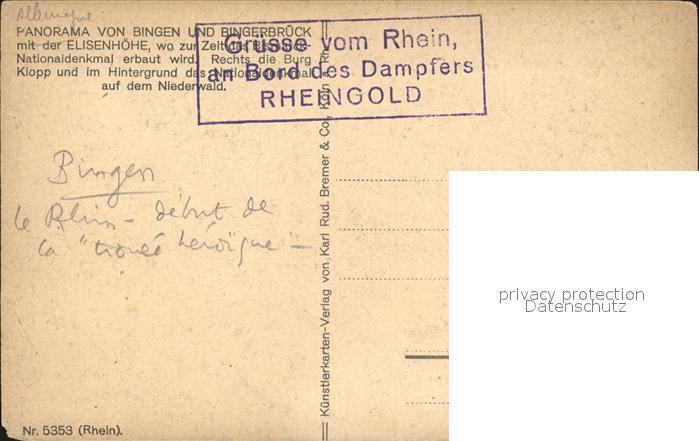 Allemagne
PANORAMA VON BINGEN UND BINGERBRÜCK
mit der ELISENHÖHE, wo zur Zeit das Bismarck-
Nationaldenkmal erbaut wird. Rechts die Burg
Klopp und im Hintergrund das Nationaldenkmal
auf dem Niederwald.
Grüsse vom Rhein,
an Bord des Dampfers
RHEINGOLD
Bingen
le Rhin - début de
la "trouée héroïque" -
Künstlerkarten-Verlag von Karl Rud. Bremer & Co., Köln a. Rh.
privacy protection
Datenschutz
Nr. 5353 (Rhein).